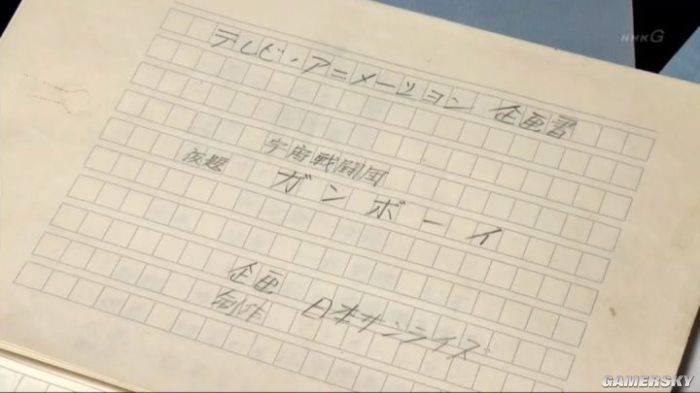 NHK G
テレビ・アニメーション 企画書
宇宙戦闘団
仮題 ガンボーイ
企画 日本サンライズ
制作
GAMERSKY